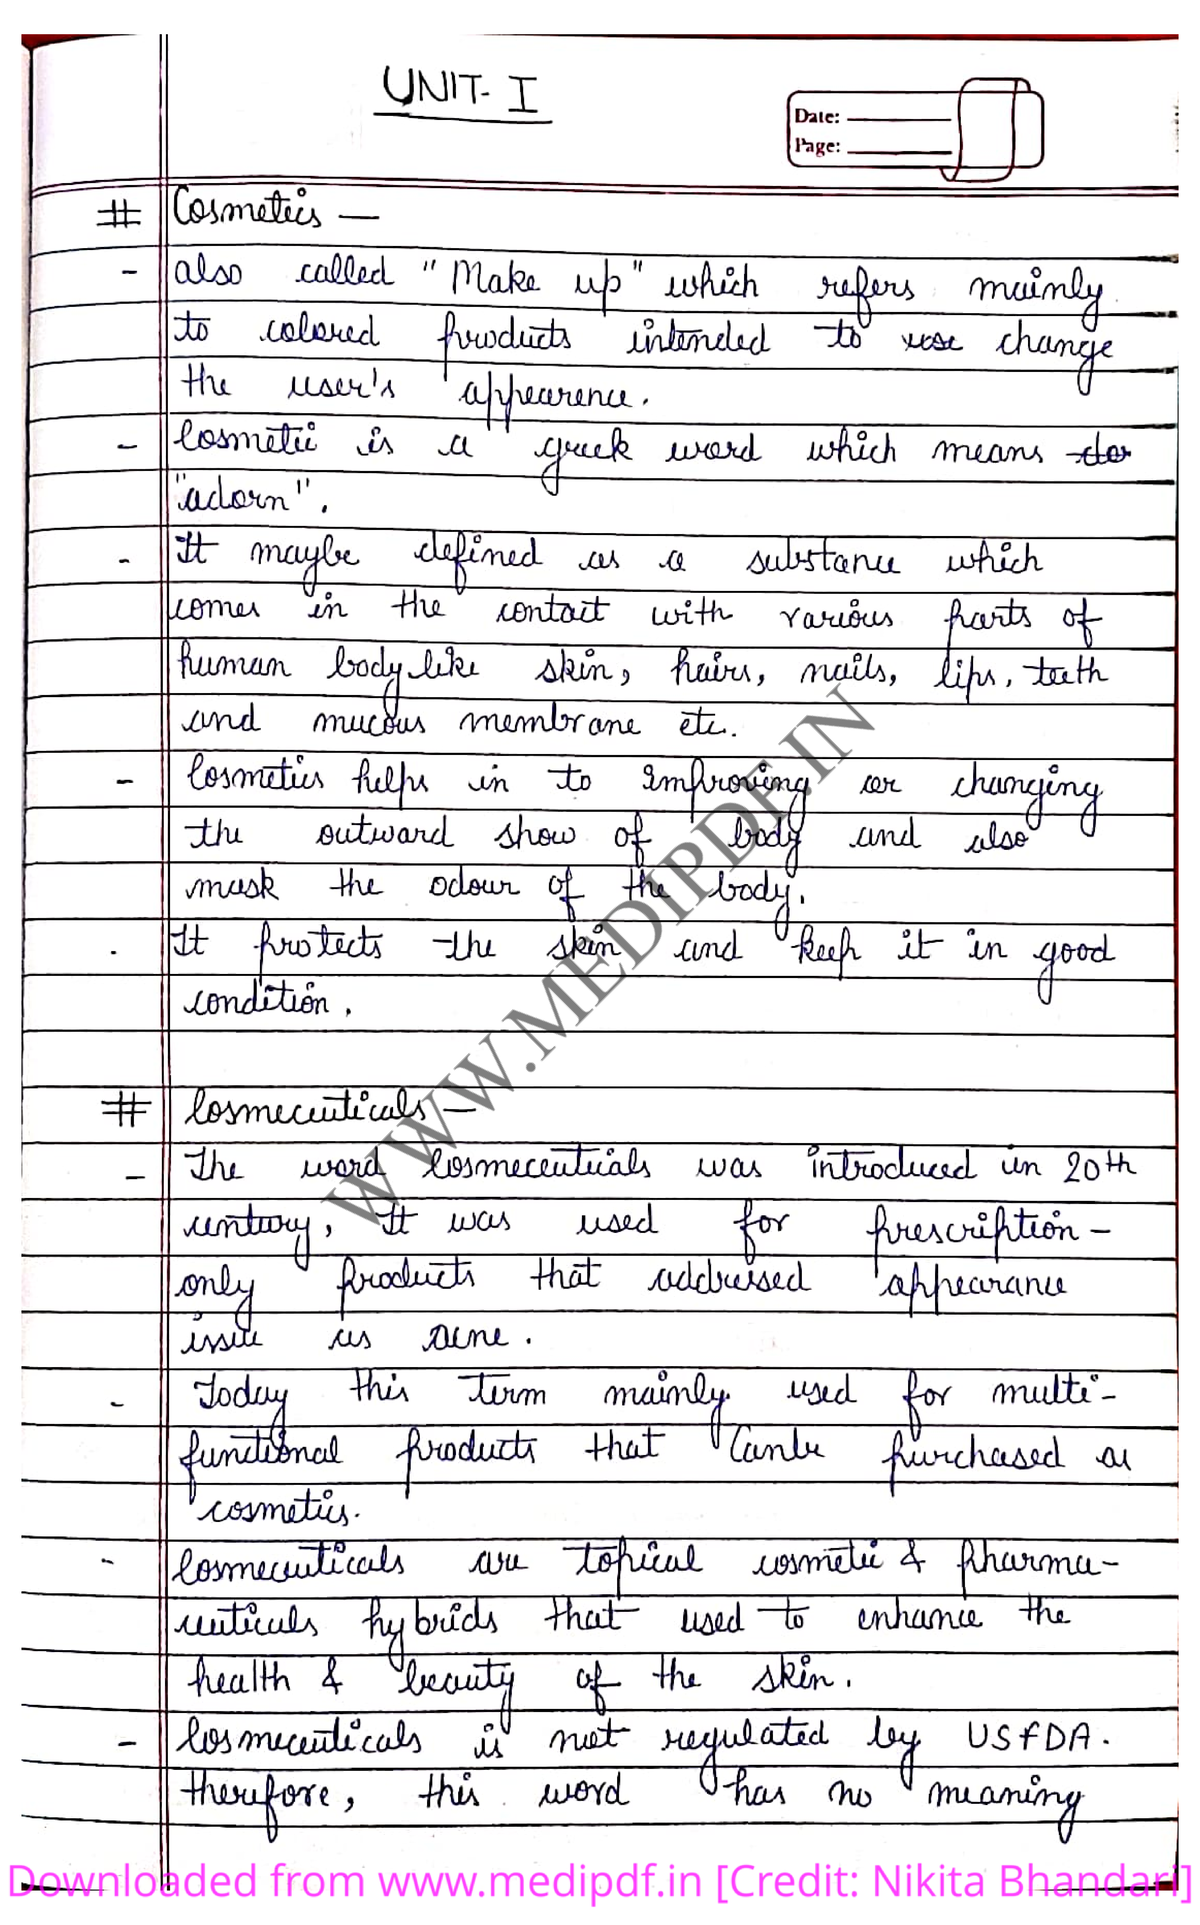 UNIT- I
Date:
Page:
# Cosmetics —
- also called "Make up" which refers mainly
to colored products intended to use change
the user's appearence.
- Cosmetic is a greek word which means to
"adorn".
- It maybe defined as a substance which
comes in the contact with various parts of
human body like skin, hairs, nails, lips, teeth
and mucous membrane etc.
- Cosmetics helps in to improving or changing
the outward show of body and also
mask the odour of the body.
. It protects the skin and keep it in good
condition.
# Cosmeceuticals —
- The word Cosmeceuticals was introduced in 20th
century, It was used for prescription-
only products that addressed appearance
issue as acne.
- Today this term mainly used for multi-
functional products that Canbe purchased as
cosmetics.
- Cosmeceuticals are topical cosmetic & pharma-
ceuticals hybrids that used to enhance the
health & beauty of the skin.
- Cosmeceuticals is not regulated by USFDA.
therefore, this word has no meaning
WWW.MEDIPDF.IN
Downloaded from www.medipdf.in [Credit: Nikita Bhandari]